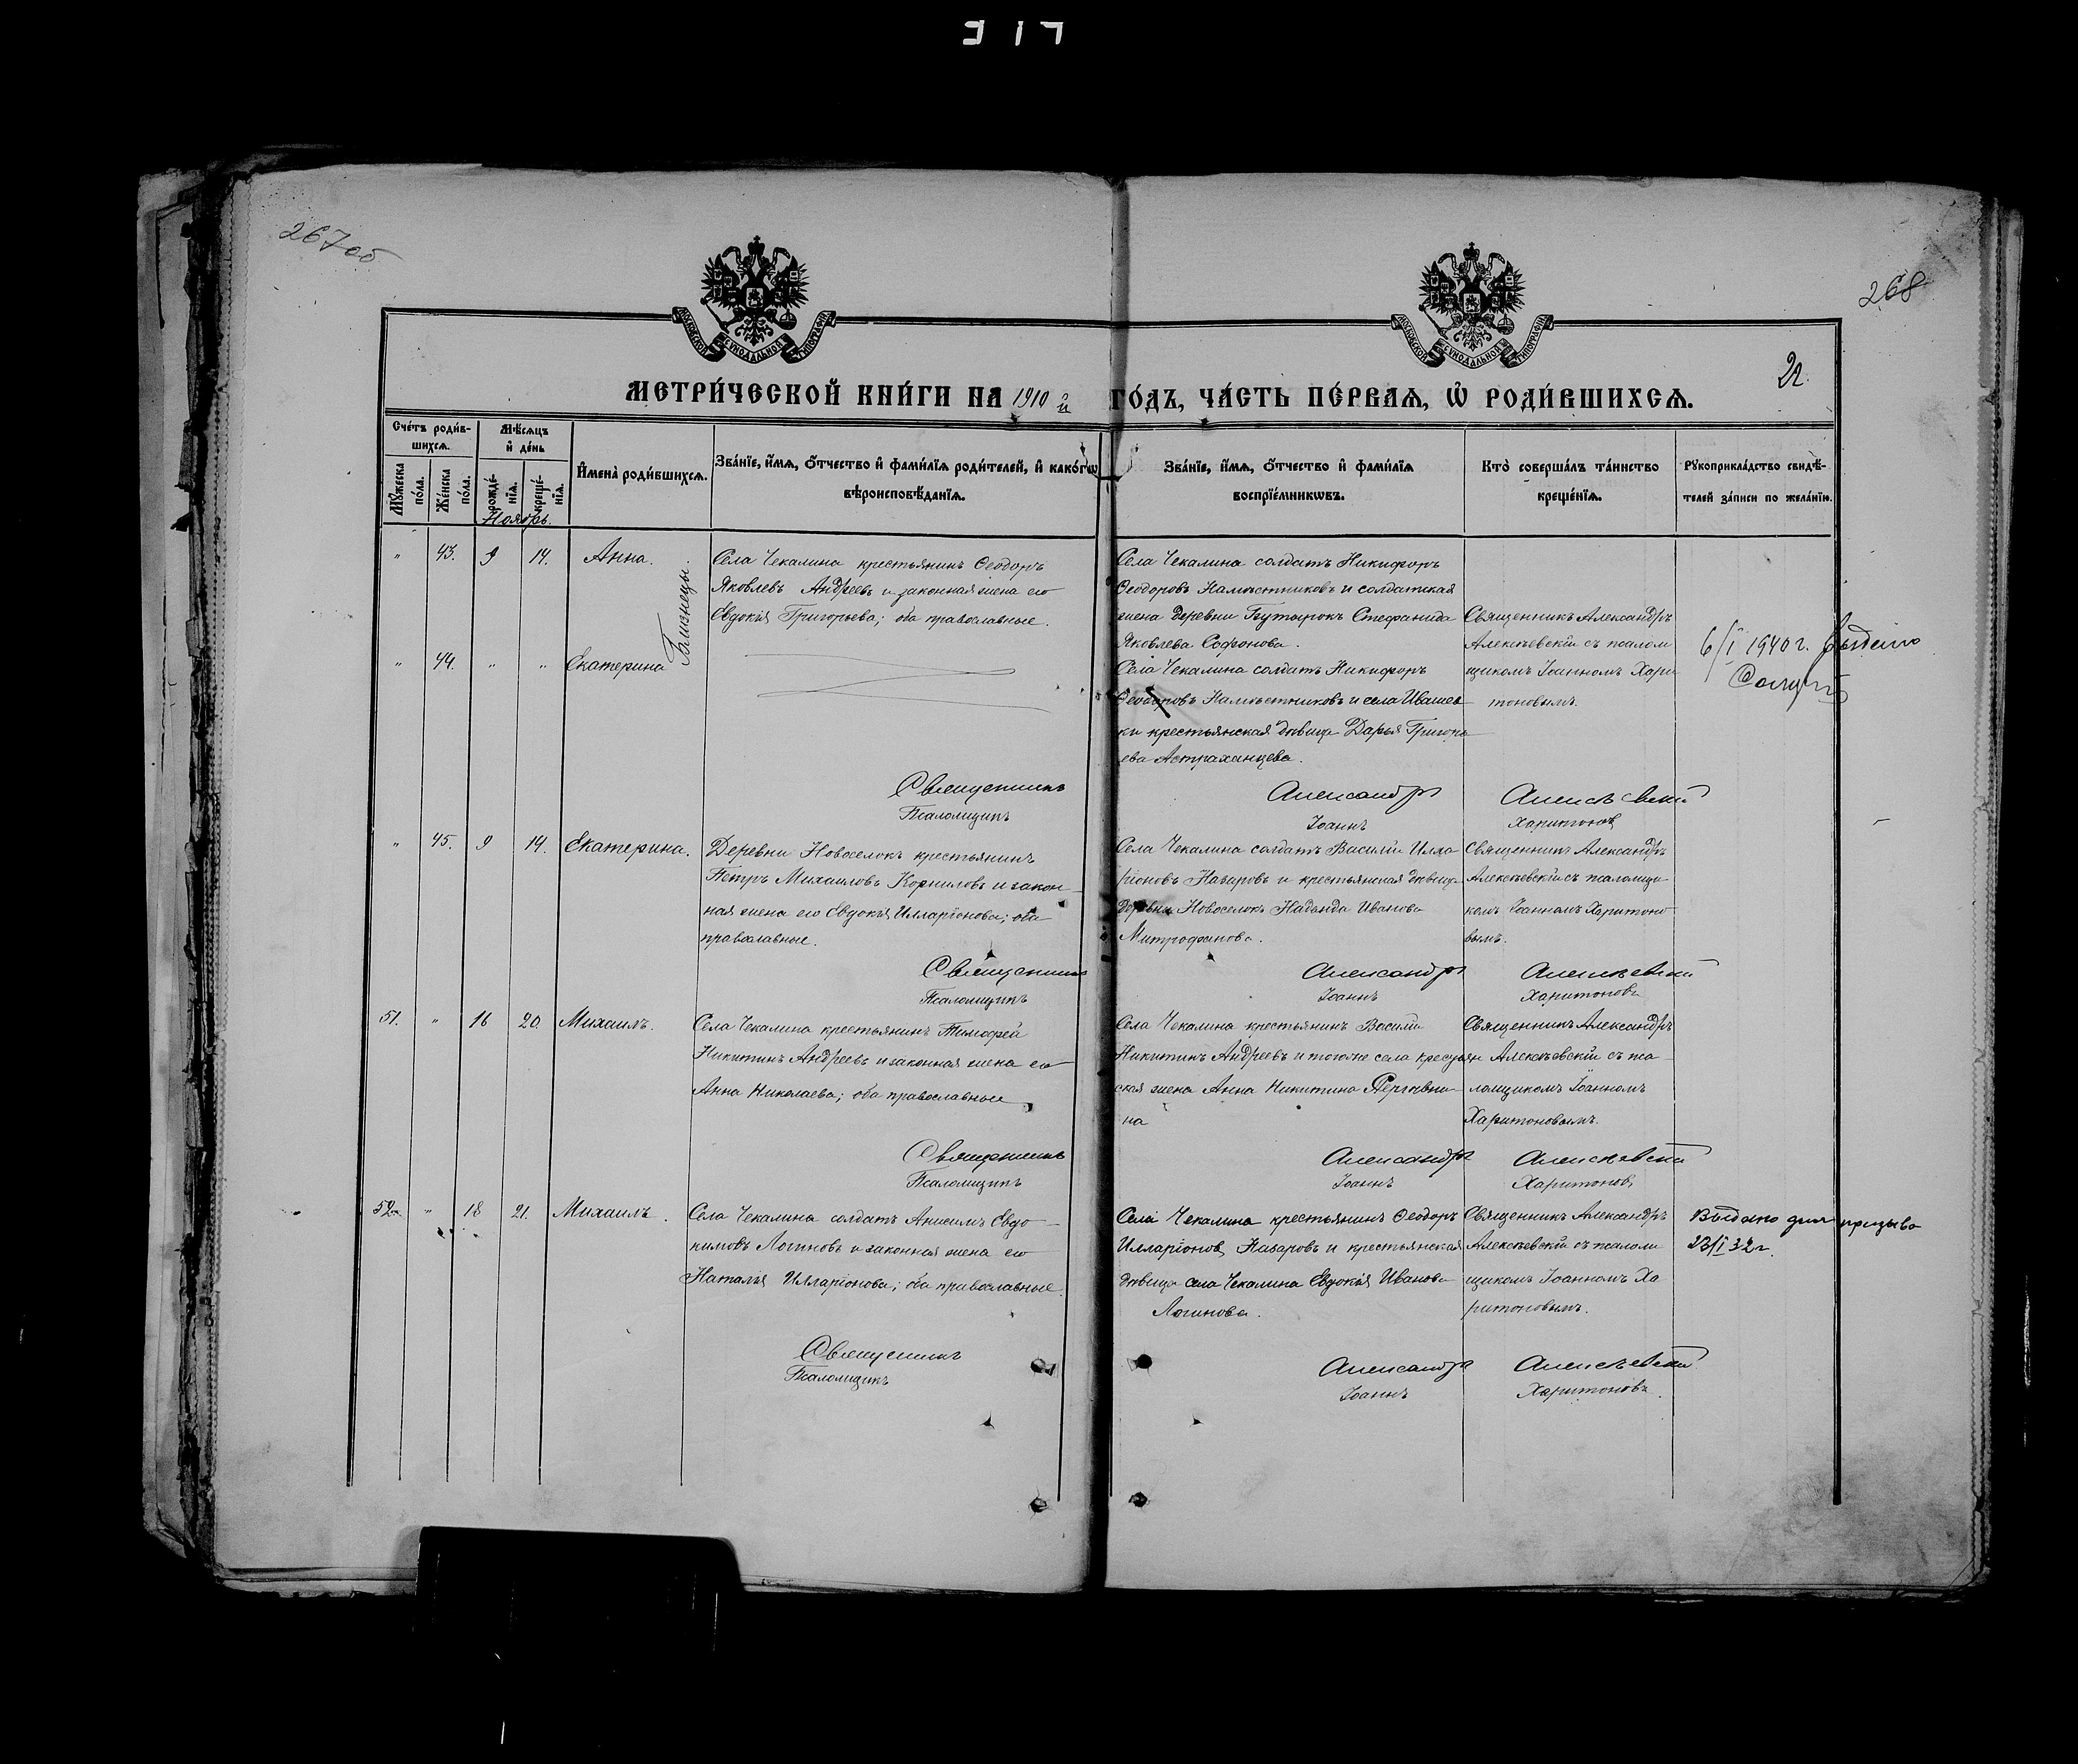 317
267об
268
22.
МЕТРИ́ЧЕСКОЙ КНИ́ГИ НА 1910й ГО́ДЪ, ЧА́СТЬ ПЕ́РВАЯ, Ѡ҆ РОДИ́ВШИХСЯ.
МОСКОВСКОЙ СѴНОДАЛЬНОЙ ТИПОГРАФІИ
МОСКОВСКОЙ СѴНОДАЛЬНОЙ ТИПОГРАФІИ
Сче́тъ роди́в-
шихся.
Мѣ́сяцъ
и҆ де́нь
Мꙋ́жеска по́ла.
Же́нска по́ла.
рожде́-нїя.
креще́-нїя.
И҆мена̀ роди́вшихся.
Зва́нїе, и҆́мя, ѻ҆́тчество и҆ фами́лїя роди́телей, и҆ како́гѡ
вѣроисповѣ́данїя.
Зва́нїе, и҆́мя, ѻ҆́тчество и҆ фами́лїя
воспрїе́мникѡвъ.
Кто̀ соверша́лъ та́инство
креще́нїя.
Рꙋкоприкла́дство свидѣ́-
телей за́писи по жела́нїю.
Ноябрь.
" 43. 9 14. Анна.
Близнецы.
Села Чекалина крестьянинъ Ѳеодоръ
Яковлевъ Андреевъ и законная жена его
Евдокія Григорьева; оба православные.
Села Чекалина солдатъ Никифоръ
Ѳеодоровъ Намѣстниковъ и солдатская
жена деревни Бутырокъ Стефанида
Яковлева Софонова.
Священникъ Александръ
Алексѣевскій съ псалом
щикомъ Іоанномъ Хари
тоновымъ.
" 44. " " Екатерина
Села Чекалина солдатъ Никифоръ
Ѳеодоровъ Намѣстниковъ и села Ивашев
ки крестьянская дѣвица Дарья Григорь
ева Астраханцева.
6/I 1940 г.
Священникъ Александръ Алексѣевскій
Псаломщикъ Іоаннъ Харитоновъ
" 45. 9 14. Екатерина.
Деревни Новоселокъ крестьянинъ
Петръ Михаиловъ Корниловъ и закон
ная жена его Евдокія Илларіонова; оба
православные.
Села Чекалина солдатъ Василій Илла
ріоновъ Назаровъ и крестьянская дѣвица
деревни Новоселокъ Надежда Иванова
Митрофанова.
Священникъ Александръ
Алексѣевскій съ псаломщи
комъ Іоанномъ Харитоно
вымъ.
Священникъ Александръ Алексѣевскій
Псаломщикъ Іоаннъ Харитоновъ
51. " 16 20. Михаилъ.
Села Чекалина крестьянинъ Тимофей
Никитинъ Андреевъ и законная жена его
Анна Николаева; оба православные
Села Чекалина крестьянинъ Василій
Никитинъ Андреевъ и тогоже села крестьян
ская жена Анна Никитина
на
Священникъ Александръ
Алексѣевскій съ пса
ломщикомъ Іоанномъ
Харитоновымъ.
Священникъ Александръ Алексѣевскій
Псаломщикъ Іоаннъ Харитоновъ
52. " 18 21. Михаилъ.
Села Чекалина солдатъ Анисимъ Евдо
кимовъ Логиновъ и законная жена его
Наталія Илларіонова; оба православные.
Села Чекалина крестьянинъ Ѳеодоръ
Илларіоновъ Назаровъ и крестьянская
дѣвица села Чекалина Евдокія Иванова
Логинова.
Священникъ Александръ
Алексѣевскій съ псалом
щикомъ Іоанномъ Ха
ритоновымъ.
Выдано для призыва
23/I 32 г.
Священникъ Александръ Алексѣевскій
Псаломщикъ Іоаннъ Харитоновъ.